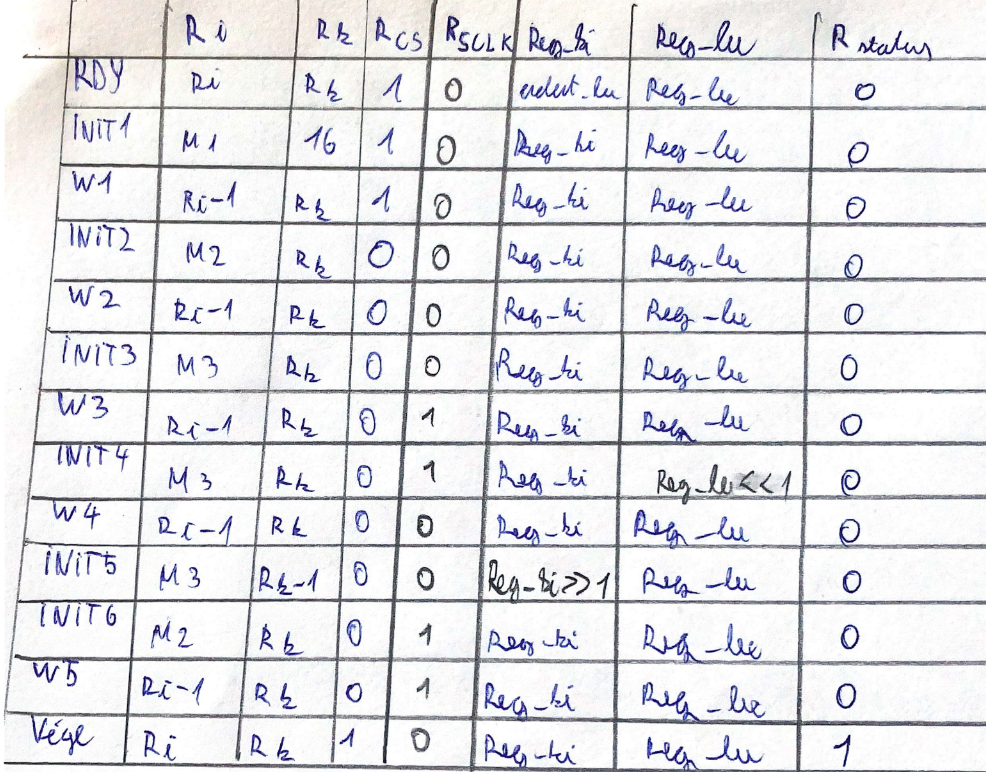 Ri Rk RCS RSCLK Reg-ki Reg-be R status
RDY Ri Rk 1 0 Reg-be 0
INIT1 M1 16 1 0 Reg-ki Reg-be 0
W1 Ri-1 Rk 1 0 Reg-ki Reg-be 0
INIT2 M2 Rk 0 0 Reg-ki Reg-be 0
W2 Ri-1 Rk 0 0 Reg-ki Reg-be 0
INIT3 M3 Rk 0 0 Reg-ki Reg-be 0
W3 Ri-1 Rk 0 1 Reg-ki Reg-be 0
INIT4 M3 Rk 0 1 Reg-ki Reg-be<<1 0
W4 Ri-1 Rk 0 0 Reg-ki Reg-be 0
INIT5 M3 Rk-1 0 0 Reg-ki>>1 Reg-be 0
INIT6 M2 Rk 0 1 Reg-ki Reg-be 0
W5 Ri-1 Rk 0 1 Reg-ki Reg-be 0
Vége Ri Rk 1 0 Reg-ki Reg-be 1